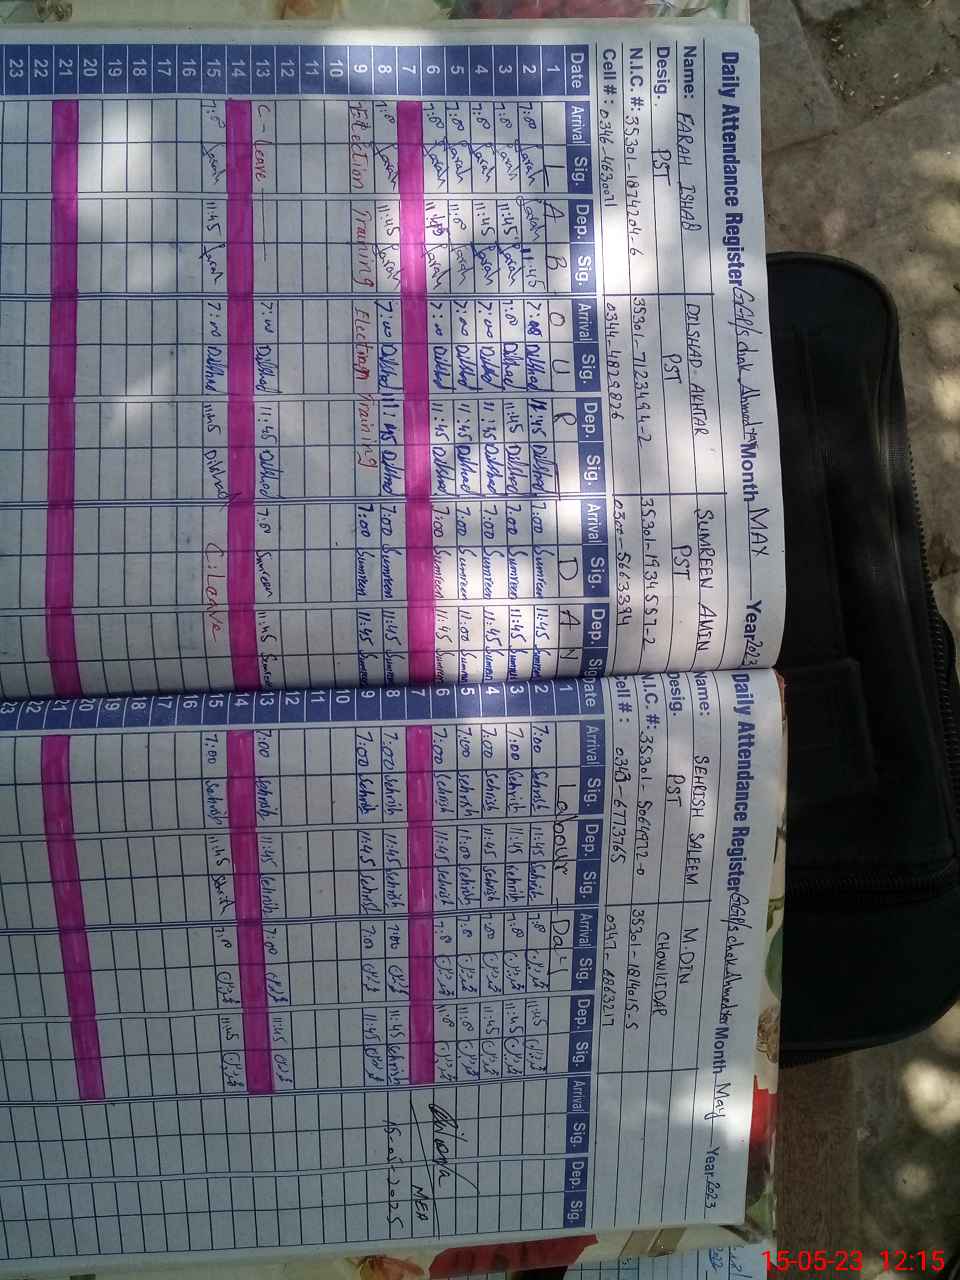 Daily Attendance Register GGP/s chak Ahmed Month MAY Year 2023
Name: FARAH ISHAQ DILSHAD AKHTAR SUMREEN AMIN
Desig. PST PST PST
N.I.C. #: 35301-1874204-6 35301-7123494-2 35301-1934557-2
Cell #: 0346-4630071 0344-4829826 0300-5663394
Date Arrival Sig. Dep. Sig. Arrival Sig. Dep. Sig. Arrival Sig. Dep. Sig
1 L A B O U R D A Y
2 7:00 Sarah 11:45 7:00 Dilshad 11:45 Dilshad 7:00 Sumreen 11:45 Sumreen
3 7:00 Sarah 11:45 Sarah 7:00 Dilshad 11:45 Dilshad 7:00 Sumreen 11:45 Sumreen
4 7:00 Sarah 11:45 Sarah 7:00 Dilshad 11:45 Dilshad 7:00 Sumreen 11:45 Sumreen
5 7:00 Sarah 11:00 Sarah 7:00 Dilshad 11:45 Dilshad 7:00 Sumreen 11:00 Sumreen
6 7:00 Sarah 11:45 Sarah 7:00 Dilshad 11:45 Dilshad 7:00 Sumreen 11:45 Sumreen
7
8 7:00 Sarah 11:45 Sarah 7:00 Dilshad 11:45 Dilshad 7:00 Sumreen 11:45 Sumreen
9 Election Training Election Training 7:00 Sumreen 11:45 Sumreen
10
11
12
13 C-leave 7:00 Dilshad 11:45 Dilshad 7:00 Sumreen 11:45
14
15 7:00 Sarah 11:45 Sarah 7:00 Dilshad 11:45 Dilshad C.Leave
16
17
18
19
20
21
22
23
Daily Attendance Register GGP/s chak Ahmed Month May Year 2023
Name: SEHRISH SALEEM M.DIN
Desig. PST CHOWKIDAR
N.I.C. #: 35301-5064972-0 35301-1814015-5
Cell #: 0343-6773765 0347-6863217
Date Arrival Sig. Dep. Sig. Arrival Sig. Dep. Sig. Arrival Sig. Dep. Sig.
1 Labour Day
2 7:00 Sehrish 11:45 Sehrish 7:00 11:45
3 7:00 Sehrish 11:45 Sehrish 7:00 11:45
4 7:00 Sehrish 11:45 Sehrish 7:00 11:45
5 7:00 Sehrish 11:00 Sehrish 7:00 11:00
6 7:00 Sehrish 11:45 Sehrish 7:00 11:00
7 MEA
8 7:00 Sehrish 11:45 Sehrish 7:00 11:45 Sehrish 15-05-2025
9 7:00 Sehrish 11:45 Sehrish 7:00 11:45
10
11
12
13 7:00 Sehrish 11:45 Sehrish 7:00 11:45
14
15 7:00 Sehrish 11:45 Sehrish 7:00 11:45
16
17
18
19
20
21
22
23
15-05-23 12:15